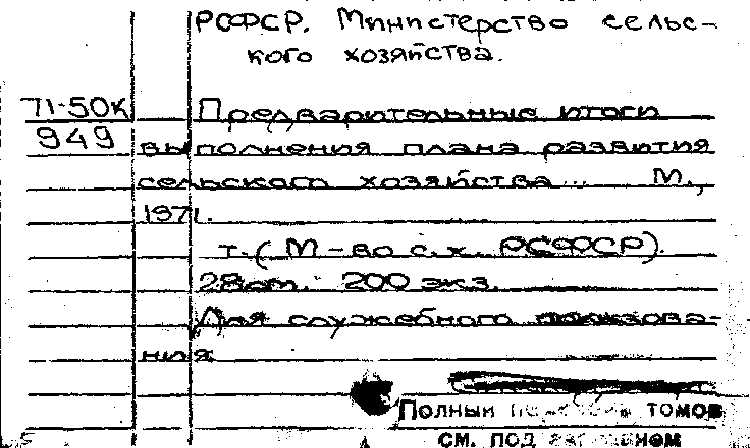 РСФСР. Министерство сельс-
кого хозяйства.
71-50К
949
Предварительные итоги
выполнения плана развития
сельского хозяйства... М.,
1971.
т. (М-во с.х. РСФСР).
28 см. 200 экз.
Для служебного пользова-
ния
Полный томов
см. под